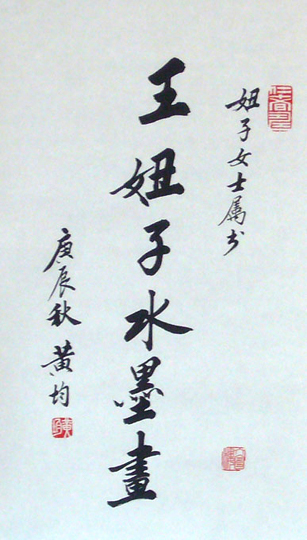 妞子女士属书
王妞子水墨畫
庚辰秋 黄均